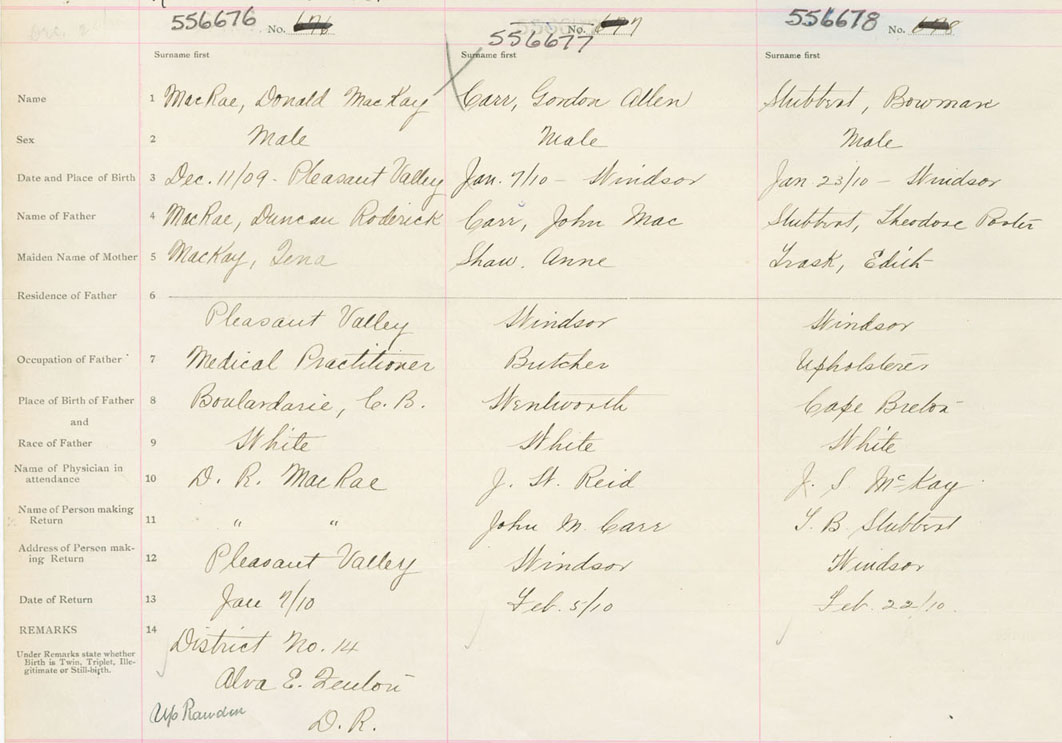 556676 No. 676 556677 No. 677 556678 No. 678
Surname first Surname first Surname first
Name 1 MacRae, Donald MacKay Carr, Gordon Allen Stubbert, Bowman
Sex 2 Male Male Male
Date and Place of Birth 3 Dec. 11/09 - Pleasant Valley Jan. 7/10 - Windsor Jan 23/10 - Windsor
Name of Father 4 MacRae, Duncan Roderick Carr, John Mac Stubbert, Theodore
Maiden Name of Mother 5 MacKay, Tena Shaw. Anne Trask, Edith
Residence of Father 6
Pleasant Valley Windsor Windsor
Occupation of Father 7 Medical Practitioner Butcher Upholsterer
Place of Birth of Father 8 Boulardarie, C. B. Wentworth Cape Breton
and
Race of Father 9 White White White
Name of Physician in
attendance 10 D. R. MacRae J. W. Reid J. S McKay
Name of Person making
Return 11 " " John M. Carr T. B. Stubbert
Address of Person mak-
ing Return 12 Pleasant Valley Windsor Windsor
Date of Return 13 Jan 7/10 Feb. 5/10 Feb. 22/10.
REMARKS 14
District No. 14
Under Remarks state whether
Birth is Twin, Triplet, Ille-
gitimate or Still-birth.
Alva E. Fenton
Up Rawdon
D. R.